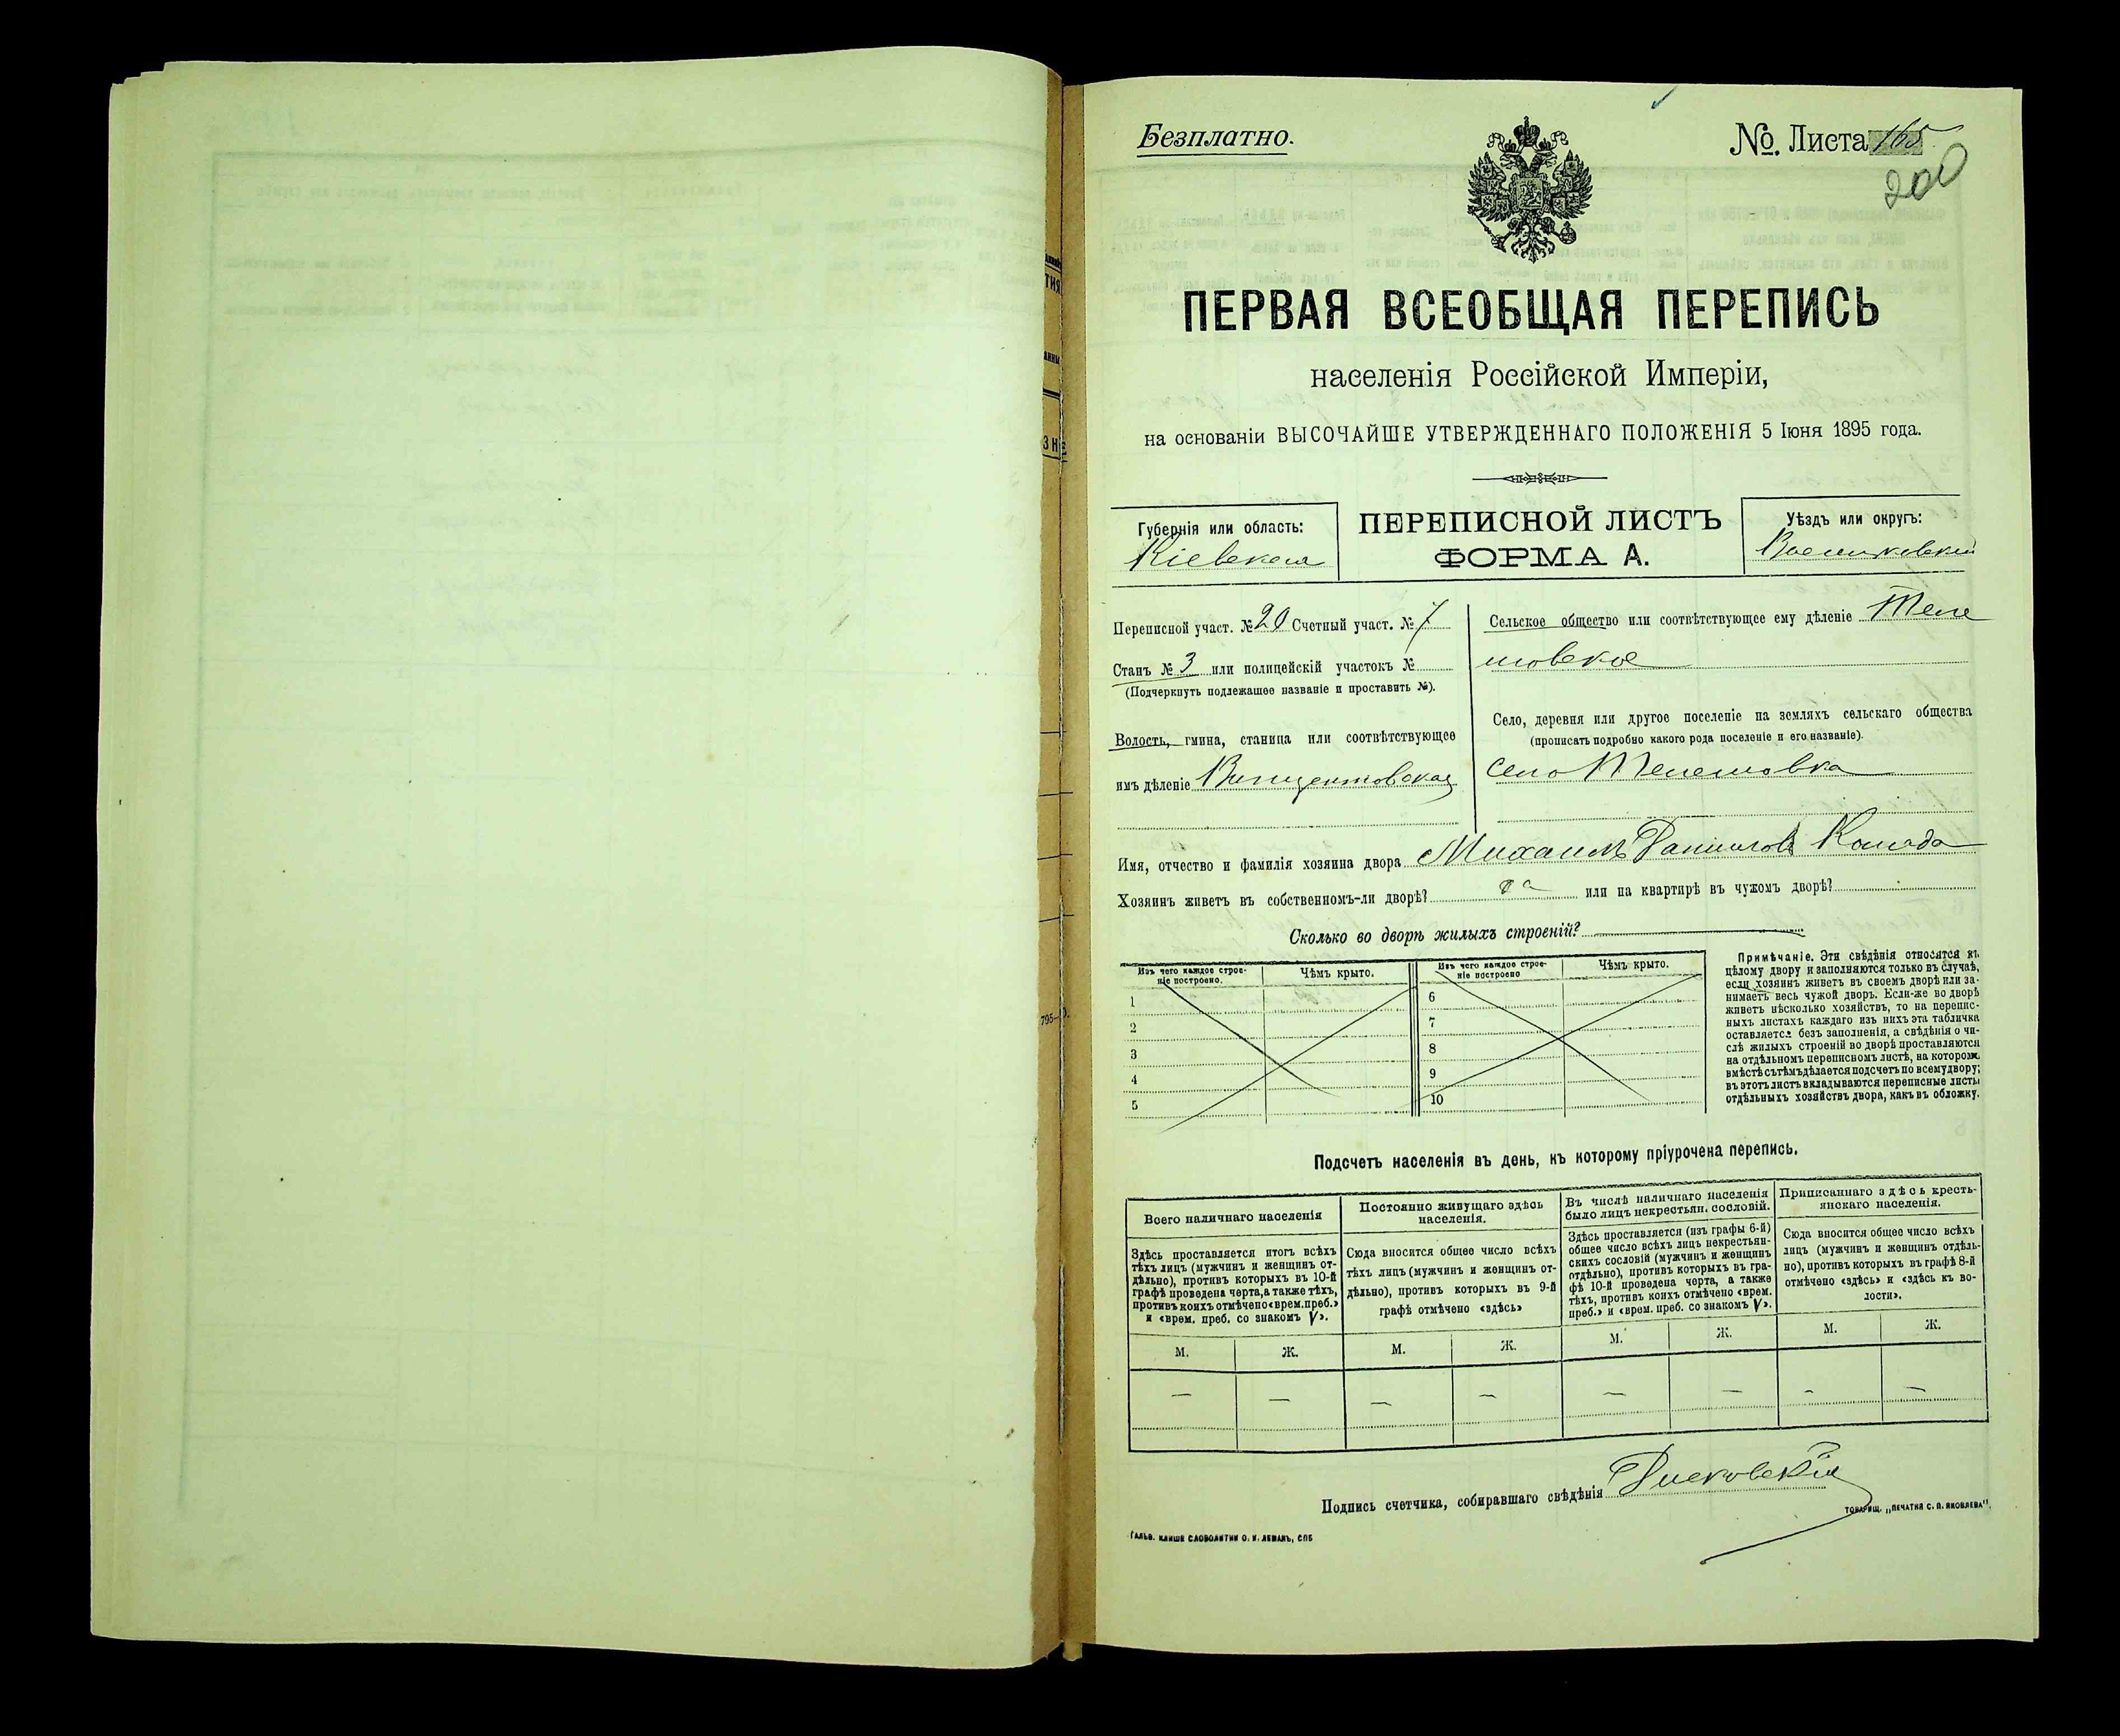 Безплатно.
№. Листа 165
200
ПЕРВАЯ ВСЕОБЩАЯ ПЕРЕПИСЬ
населенія Россійской Имперіи,
на основаніи ВЫСОЧАЙШЕ УТВЕРЖДЕННАГО ПОЛОЖЕНІЯ 5 Іюня 1895 года.
Губернія или область:
Кіевская
ПЕРЕПИСНОЙ ЛИСТЪ
ФОРМА А.
Уѣздъ или округъ:
Васильковскій
Переписной участ. № 20 Счетный участ. № 7
Станъ № 3 или полицейскій участокъ №
(Подчеркнуть подлежащее названіе и проставить №).
Волость, гмина, станица или соотвѣтствующее
имъ дѣленіе Винцентовская
Сельское общество или соотвѣтствующее ему дѣленіе Теле
шовское
Село, деревня или другое поселеніе на земляхъ сельскаго общества
(прописать подробно какого рода поселеніе и его названіе).
село Телешовка
Имя, отчество и фамилія хозяина двора Михаилъ Даниловъ
Хозяинъ живетъ въ собственномъ-ли дворѣ? да или на квартирѣ въ чужомъ дворѣ?
Сколько во дворѣ жилыхъ строеній?
Изъ чего каждое строе-
ніе построено.
Чѣмъ крыто.
Изъ чего каждое строе-
ніе построено
Чѣмъ крыто.
1
2
3
4
5
6
7
8
9
10
Примѣчаніе. Эти свѣдѣнія относятся къ
цѣлому двору и заполняются только въ случаѣ,
если хозяинъ живетъ въ своемъ дворѣ или за-
нимаетъ весь чужой дворъ. Если-же во дворѣ
живетъ нѣсколько хозяйствъ, то на перепис-
ныхъ листахъ каждаго изъ нихъ эта табличка
оставляется безъ заполненія, а свѣдѣнія о чи-
слѣ жилыхъ строеній во дворѣ проставляются
на отдѣльномъ переписномъ листѣ, на которомъ
вмѣстѣ съ тѣмъ дѣлается подсчетъ по всему двору;
въ этотъ листъ вкладываются переписные листы
отдѣльныхъ хозяйствъ двора, какъ въ обложку.
Подсчетъ населенія въ день, къ которому пріурочена перепись.
Всего наличнаго населенія
Здѣсь проставляется итогъ всѣхъ
тѣхъ лицъ (мужчинъ и женщинъ от-
дѣльно), противъ которыхъ въ 10-й
графѣ проведена черта, а также тѣхъ,
противъ коихъ отмѣчено «врем. преб.»
и «врем. преб. со знакомъ V».
Постоянно живущаго здѣсь
населенія.
Сюда вносится общее число всѣхъ
тѣхъ лицъ (мужчинъ и женщинъ от-
дѣльно), противъ которыхъ въ 9-й
графѣ отмѣчено «здѣсь»
Въ числѣ наличнаго населенія
было лицъ некрестьян. сословій.
Здѣсь проставляется (изъ графы 6-й)
общее число всѣхъ лицъ некрестьян-
скихъ сословій (мужчинъ и женщинъ
отдѣльно), противъ которыхъ въ гра-
фѣ 10-й проведена черта, а также
тѣхъ, противъ коихъ отмѣчено «врем.
преб.» и «врем. преб. со знакомъ V».
Приписаннаго здѣсь кресть-
янскаго населенія.
Сюда вносится общее число всѣхъ
лицъ (мужчинъ и женщинъ отдѣль-
но), противъ которыхъ въ графѣ 8-й
отмѣчено «здѣсь» и «здѣсь къ во-
лости».
М. Ж. М. Ж. М. Ж. М. Ж.
— — — — — — — —
Подпись счетчика, собиравшаго свѣдѣнія
ГАЛЬВ. КЛИШЕ СЛОВОЛИТНИ О. И. ЛЕМАНЪ, СПБ
ТОВАРИЩ. „ПЕЧАТНЯ С. П. ЯКОВЛЕВА".